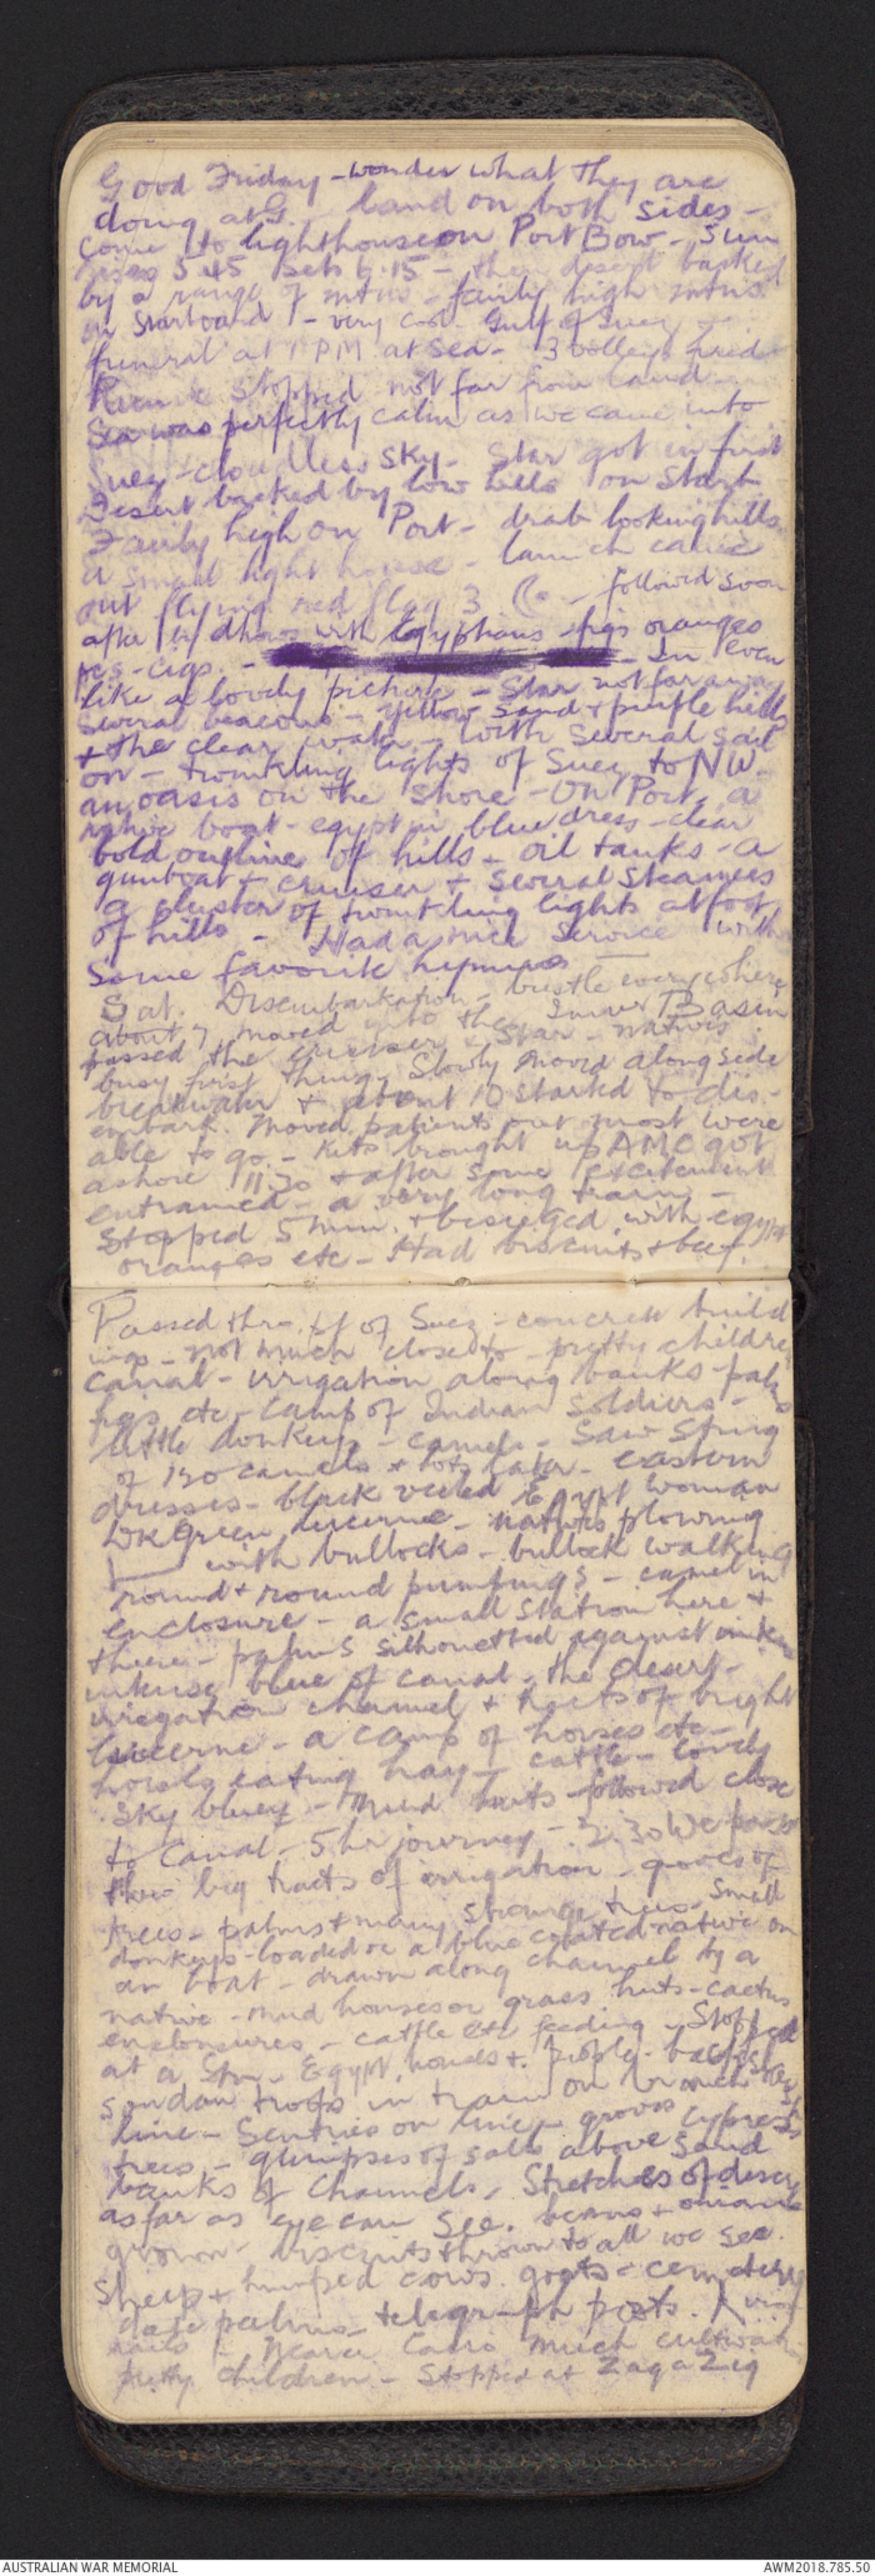 Good Friday - wonder what they are
doing at G. land on both sides -
come to lighthouse on Port Bow - Sun
rises 5.45 sets 6.15 - then desert backed
by a range of mtns - fairly high mtns
on Starboard - very cool Gulf of Suez -
funeral at 1 PM at Sea - 3 volleys fired
stopped not far from land
Sea was perfectly calm as we came into
Suez - cloudless sky - Star got in first
Desert backed by low hills on Starb
Fairly high on Port - drab looking hills
a small light house - launch came
out flying red flag 3 - followed soon
after by dhows with Egyptians - figs oranges
- cigs. - - In even
like a lovely picture - Star not far away
several beacons - yellow sand + purple hills
+ the clear water - with several sail
on - twinkling lights of Suez to NW
an oasis on the shore - On Port, a
native boat - egypt in blue dress - clear
bold outline of hills - oil tanks - a
gunboat + cruiser + several steamers
a cluster of twinkling lights at foot
of hills - Had a nice service with
some favorite hymns
Sat. Disembarkation - bustle everywhere
about 7 moved into the Inner Basin
passed the cruiser + Star - natives
busy first thing. Slowly moved alongside
breakwater + about 10 started to dis-
embark. Moved patients out most were
able to go - Kits brought up AMC got
ashore 11.30 + after some excitement
entrained - a very long train -
stopped 5 min. + besieged with egypt
oranges etc - Had biscuits + beef.
Passed thro. of Suez - concrete build
ings - not much close to - pretty children
canal - irrigation along banks - palms
figs etc - camp of Indian Soldiers -
little donkeys - camels - Saw string
of 150 camels + lots later - eastern
dresses - black veiled Egypt woman
Dk green lucerne - natives plowing
with bullocks - bullock walking
round + round pumping? - camel in
enclosure - a small station here +
there - palms silhouetted against
intense blue of canal - the desert -
irrigation channel + tracts of bright
lucerne - a camp of horses etc -
horses eating hay - cattle - lovely
sky bluey - mud huts - followed close
to Canal - 5 hr journey - 2.30 We pass
thro big tracts of irrigation - groves of
trees - palms + many strange trees - small
donkeys - loaded a blue coated native on
an boat - drawn along channel by a
native - mud houses or grass huts - cactus
enclosures - cattle etc feeding - Stopped
at a Stn - Egypt. houses + people
soudan troops in train on branch
line - Sentries on line - groves cypress
trees - glimpses of sails above sand
banks of Channels, Stretches of desert
as far as eye can see. beans + onions
grown - biscuits thrown to all we see.
Sheep + humped cows. goats - cemetery
date palms - telegraph posts.
- Near Cairo much cultivat
pretty children - Stopped at ZagaZig
AUSTRALIAN WAR MEMORIAL
AWM2018.785.50